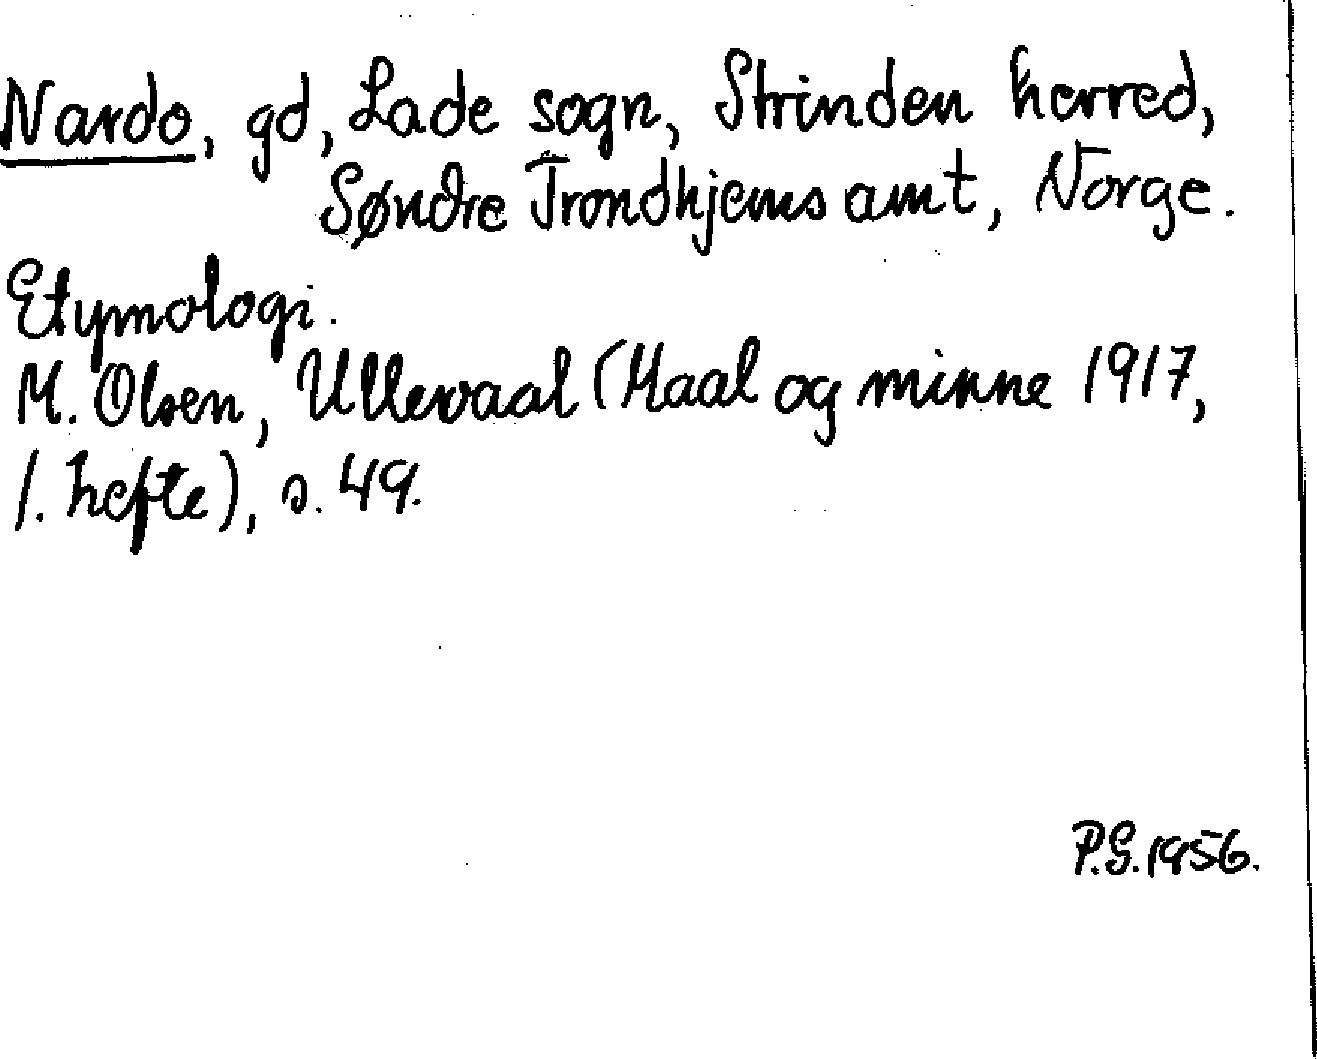 Nardo, gd, Lade sogn, Strinden herred,
Søndre Trondhjems amt, Norge.
Etymologi.
M. Olsen, Ullevaal (Maal og minne 1917,
1. hefte), s. 49.
P.G. 1956.